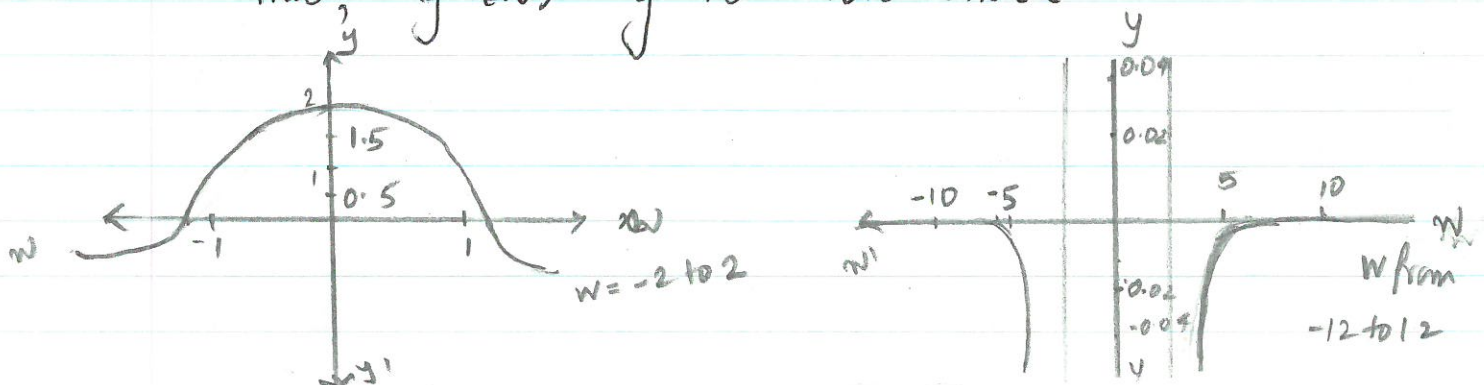 y
2
1.5
1
0.5
-1
1
w
w = -2 to 2
y'
y
0.04
0.02
-10 -5
5 10
w'
w
-0.02
-0.04
w from
-12 to 12
y